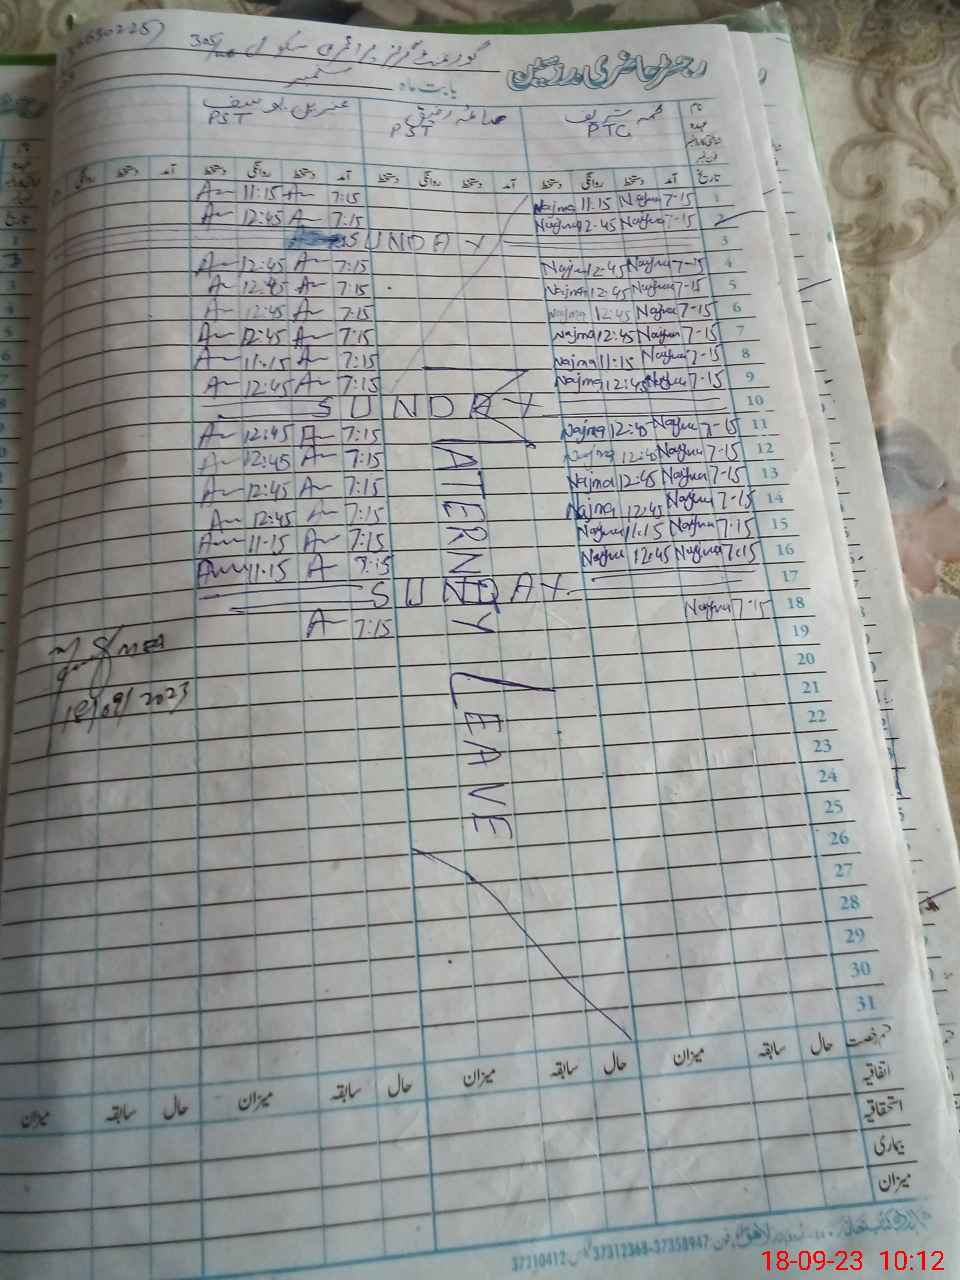 رجسٹر حاضری مدرسین گورنمنٹ گرلز پرائمری سکول 305
بابت ماہ ستمبر
نام نجمہ شریف صائمہ رفیق عنبرین یوسف
عہدہ PTC PST PST
تاریخ آمد دستخط روانگی دستخط آمد دستخط روانگی دستخط آمد دستخط روانگی دستخط آمد دستخط روانگی
1 7-15 Najma 11.15 Najma 7:15 A 11:15 A
2 7-15 Najma 12.45 Najma 7:15 A 12:45 A
3 SUNDAY
4 7-15 Najma 12:45 Najma 7:15 A 12:45 A
5 7-15 Najma 12:45 Najma 7:15 A 12:45 A
6 7-15 Najma 12:45 Najma 7:15 A 12:45 A
7 7-15 Najma 12:45 Najma 7:15 A 12:45 A
8 7-15 Najma 11-15 Najma 7:15 A 11.15 A
9 7-15 Najma 12:45 Najma 7:15 A 12:45 A
10 SUNDAY
11 7-15 Najma 12:45 Najma 7:15 A 12:45 A
12 7-15 Najma 12:45 Najma 7:15 A 12:45 A
13 7-15 Najma 12:45 Najma 7:15 A 12:45 A
14 7-15 Najma 12:45 Najma 7:15 A 12:45 A
15 7:15 Najma 11:15 Najma 7:15 A 11-15 A
16 7:15 Najma 12:45 Najma 7:15 A 11.15 A
17 SUNDAY
18 7-15 Najma 7:15 A
MATERNITY LEAVE
19
20
21
22
23
24
25
26
27
28
29
30
31
MEA
18/09/2023
قسم رخصت حال سابقہ میزان حال سابقہ میزان حال سابقہ میزان حال سابقہ میزان
اتفاقیہ
استحقاقیہ
بیماری
میزان
37312368-37350947 37210412
18-09-23 10:12